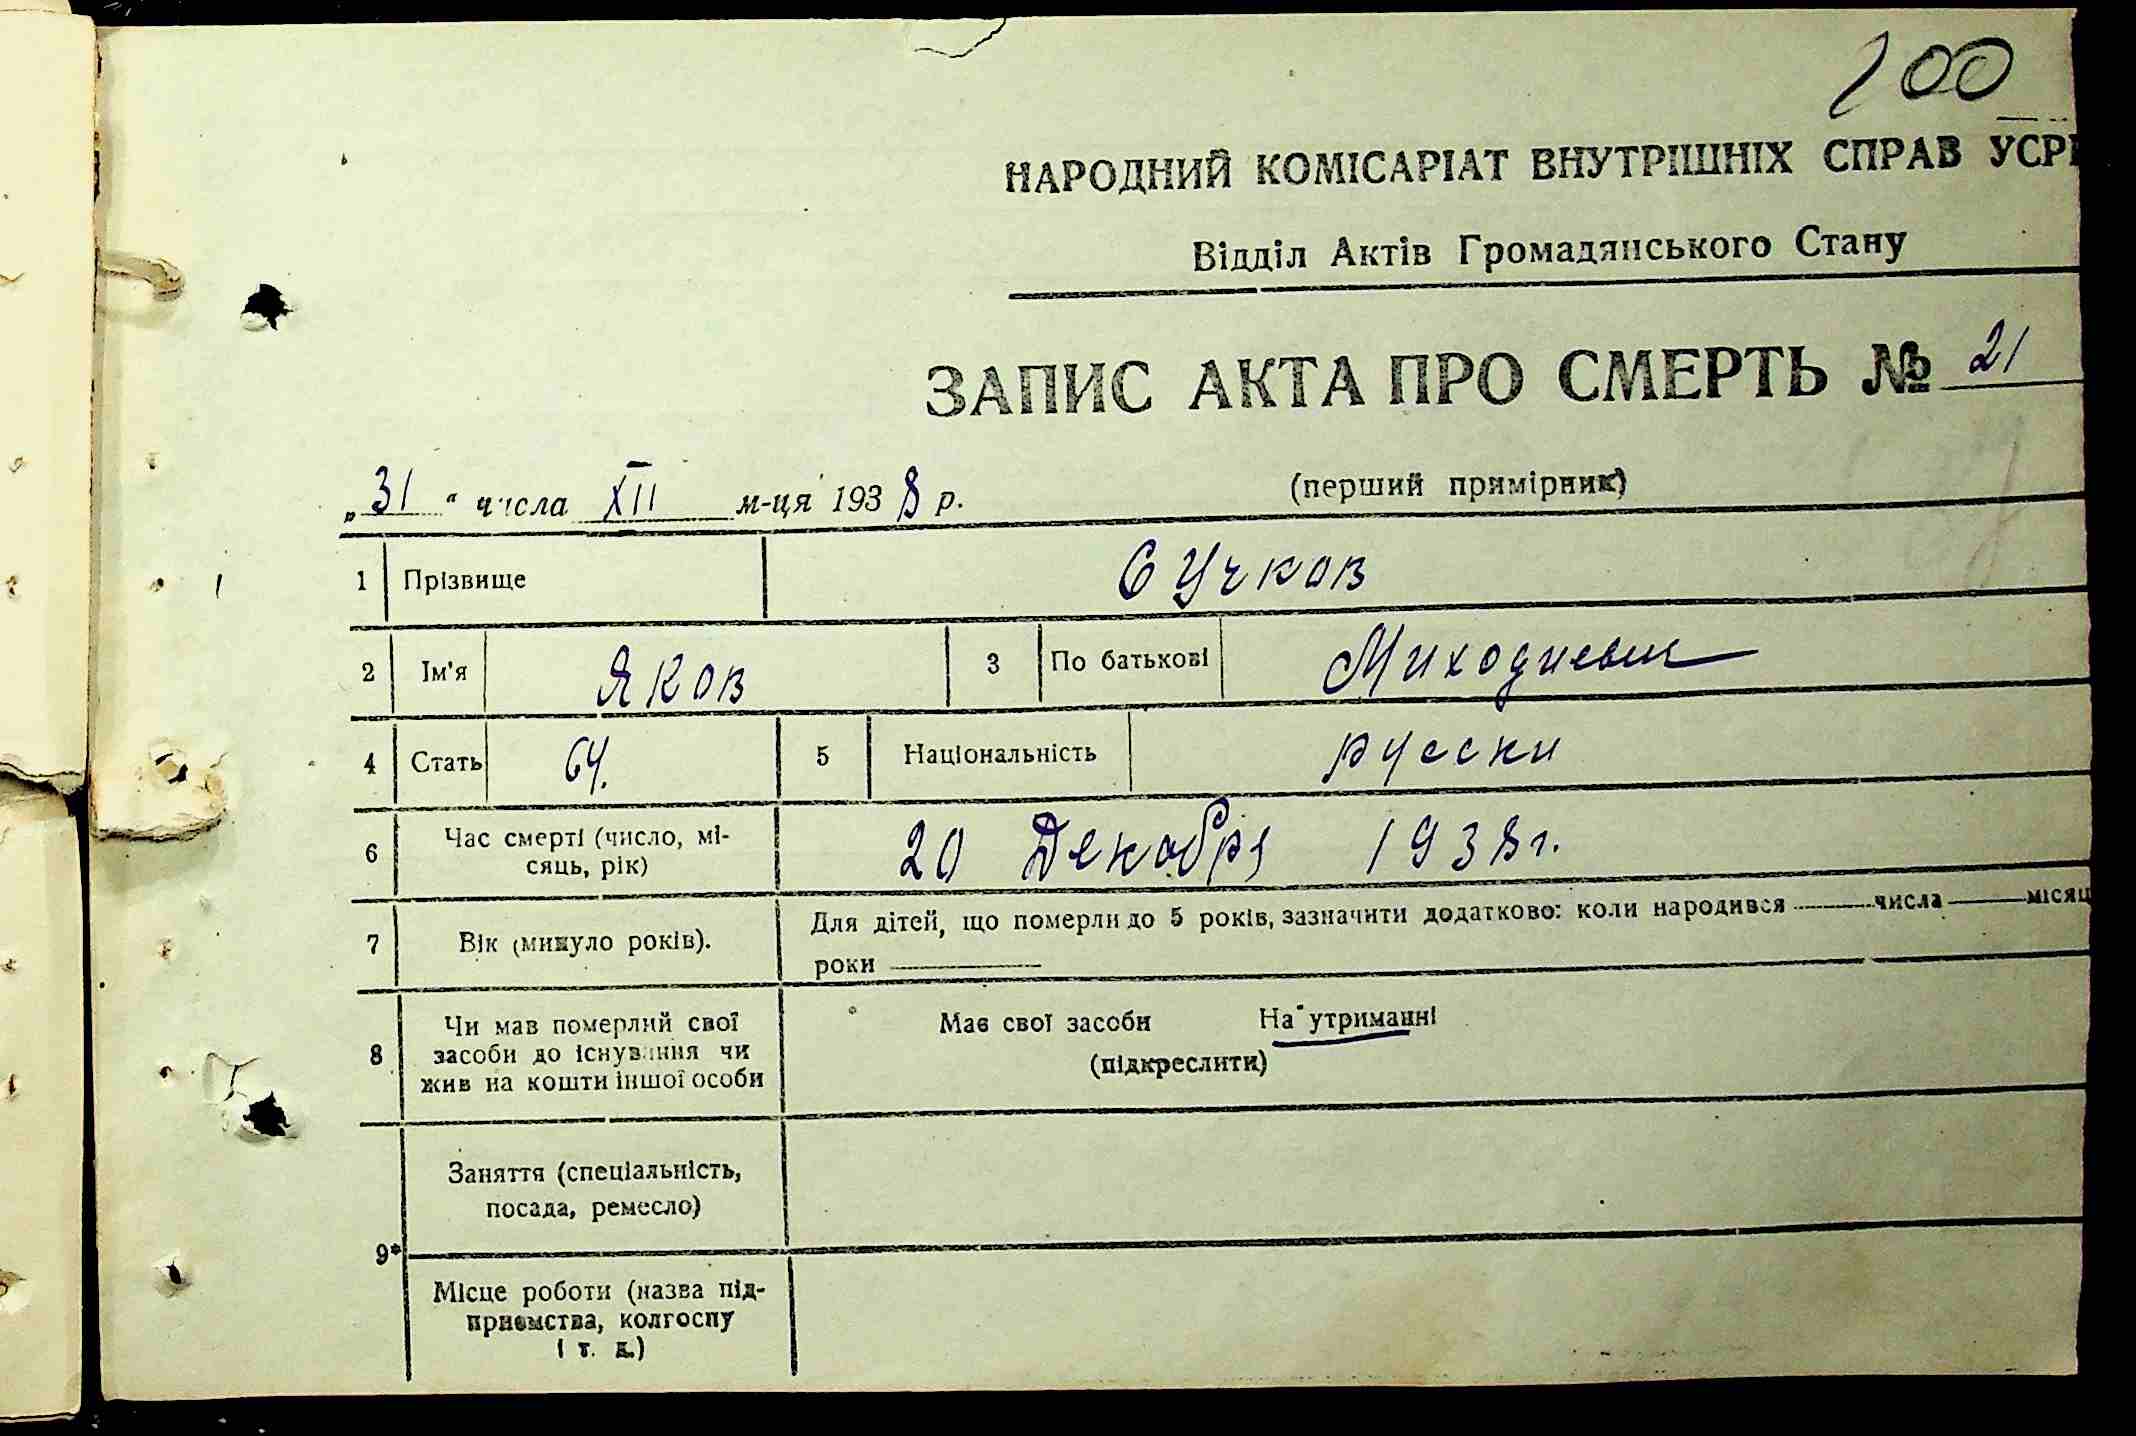 200
НАРОДНИЙ КОМІСАРІАТ ВНУТРІШНІХ СПРАВ УСРР
Відділ Актів Громадянського Стану
ЗАПИС АКТА ПРО СМЕРТЬ № 21
„31“ числа XII м-ця 1938 р.
(перший примірник)
1 Прізвище Сучков
2 Ім'я Яков 3 По батькові
4 Стать 64. 5 Національність русски
6 Час смерті (число, мі-
сяць, рік) 20 Декобря 1938г.
7 Вік (минуло років). Для дітей, що померли до 5 років, зазначити додатково: коли народився числа місяц
роки
8 Чи мав померлий свої
засоби до існування чи
жив на кошти іншої особи
Має свої засоби На утриманні
(підкреслити)
9* Заняття (спеціальність,
посада, ремесло)
Місце роботи (назва під-
приємства, колгоспу
і т. д.)